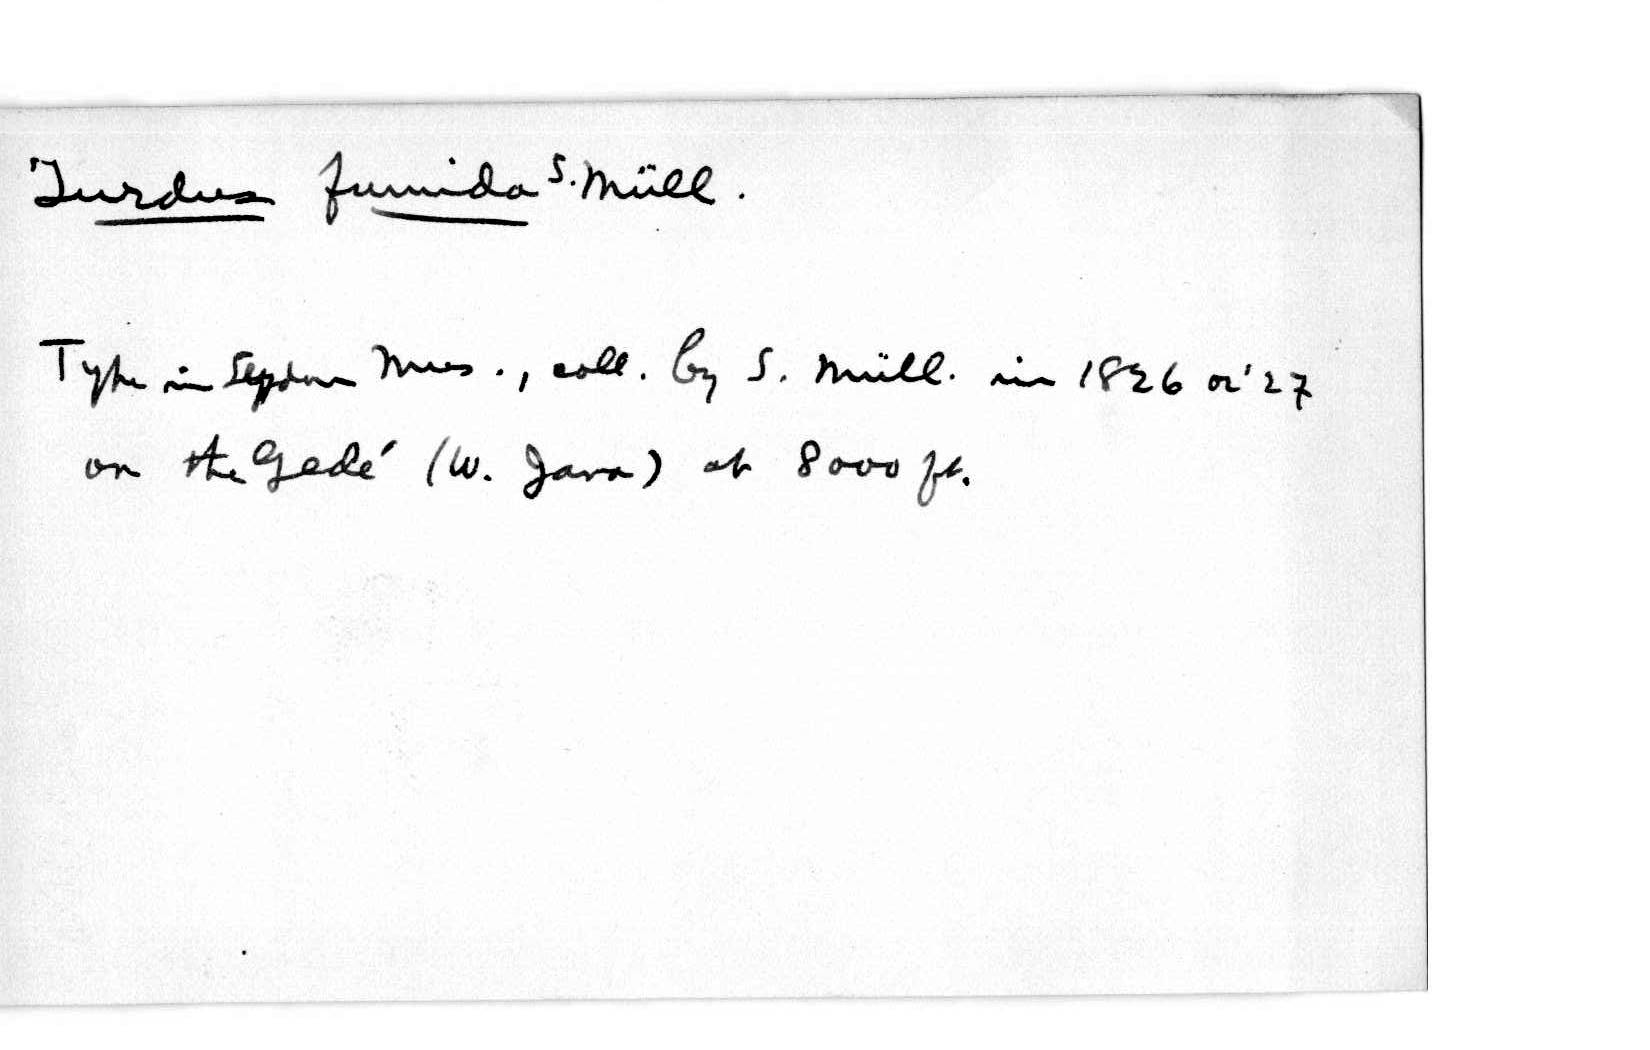 Turdus fumida S. Müll.
Type in Leyden Mus., coll. by S. Müll. in 1826 or '27
on the Gedé (W. Java) at 8000 ft.